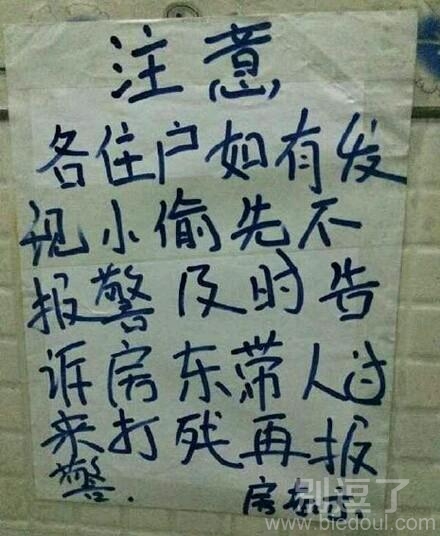 注意
各住户如有发
现小偷先不
报警及时告
诉房东带人过
来打残再报
警.
房东宣.
别逗了
www.biedoul.com